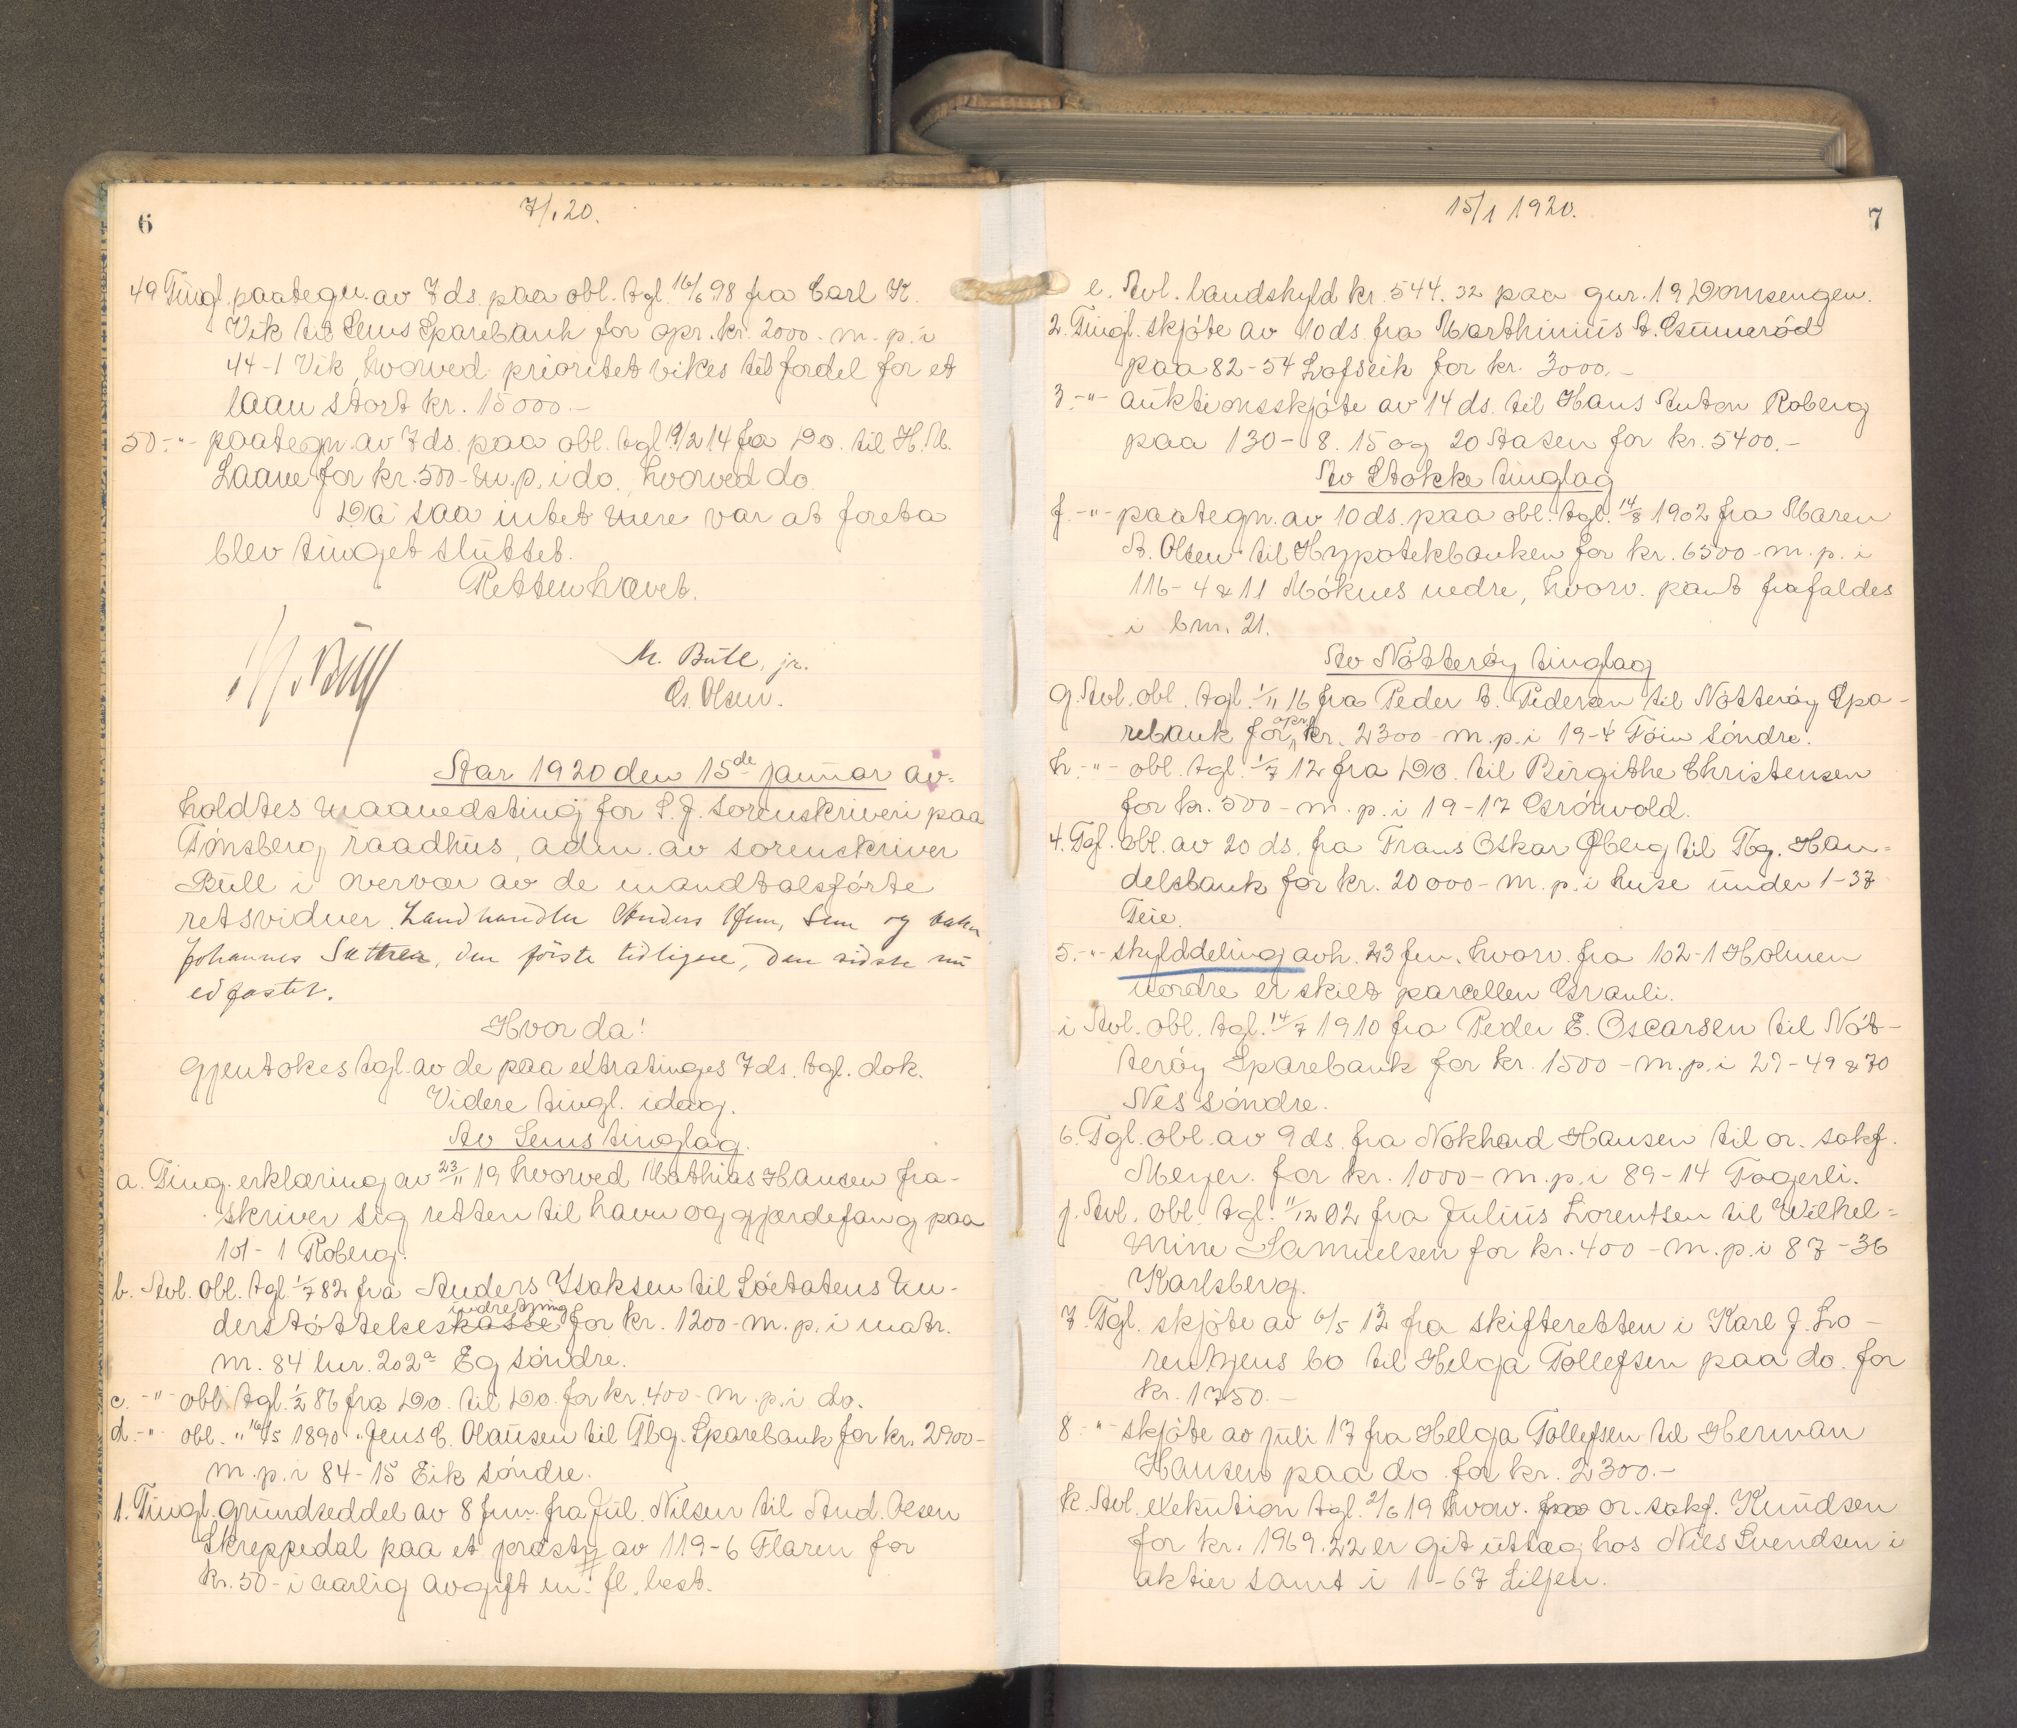 6
7/1 20.
49 Tingl. paategn. av 7 ds. paa obl. tgl. 16/6 98 fra Carl K.
Vik til Sems Sparebank for opr. kr. 2000.- m. p. i
44-1 Vik, hvorved prioritet vikes til fordel for et
laan stort kr. 15000.-
50.-"- paategn. av 7 ds. paa obl. tgl. 9/2 14 fra Do. til H. M.
Laane for kr. 500- m. p. i do., hvorved do.
Da saa intet mere var at foreta
blev tinget sluttet.
Retten hævet.
M. Bull, jr.
Cs. Olsen.
Aar 1920 den 15de januar av-
holdtes maanedsting for S. J. sorenskriveri paa
Tønsberg raadhus, adm. av sorenskriver
Bull i overvær av de mandtalsførte
retsvidner Landhandler Anders Sem, Sem og
Johannes Sættrea, den første tidligere, den sidste nu
edfæstet.
Hvor da!
gjentokes tgl. av de paa extratinges 7 ds. tgl. dok.
Videre tingl. idag.
Av Sems tinglag.
a. Ting. erklæring av 23/11 19 hvorved Mathias Hansen fra-
skriver sig retten til havn og gjærdefang paa
101-1 Roberg.
b. Avl. obl. tgl. 1/7 82 fra Anders Isaksen til Søetatens Un-
derstøttelseskasse indretning for kr. 1200- m. p. i matr.
nr. 84 lnr. 202a Eg søndre.
c. -"- obl. tgl. 1/2 86 fra Do. til Do. for kr. 400- m. p. i do.
d. -"- obl. " 16/5 1890 " Jens C. Olausen til Tbg. Sparebank for kr. 2900-
m. p. i 84-15 Eik søndre.
1. Tingl. grundseddel av 8 jun. fra Jul. Nilsen til And. Olsen
Skreppedal paa et præsty av 119-6 Flaren for
kr. 50- i aarlig avgift m. fl. best.
15/1 1920.
7
e. Avl. landskyld kr. 544.32 paa gnr. 19 Domsengen.
2. Tingl. skjøte av 10 ds. fra Marthinius A. Gunnerød
paa 82-54 Lofseik for kr. 3000.-
3.-"- auktionsskjøte av 14 ds. til Hans Anton Roberg
paa 130-8. 15 og 20 Aasen for kr. 5400.-
Av Stokke tinglag
f. -"- paategn. av 10 ds. paa obl. tgl. 14/8 1902 fra Maren
A. Olsen til Hypotekbanken for kr. 6500- m. p. i
116-4 & 11 Møknes nedre, hvorv. pant frafaldes
i bnr. 21.
Av Nøtterøy tinglag
g. Avl. obl. tgl. 1/11 16 fra Peder A. Pedersen til Nøtterøy Spa-
rebank for opr. kr. 2300- m. p. i 19-4 Føin søndre.
h. -"- obl. tgl. 1/7 12 fra Do. til Birgithe Christensen
for kr. 500- m. p. i 19-17 Grønvold.
4. Tgl. obl. av 20 ds. fra Frans Oskar Øberg til Tbg. Han-
delsbank for kr. 20000- m. p. i huse under 1-37
Teie.
5.-"- skylddeling avh. 23 jun. hvorv. fra 102-1 Holmen
nordre er skilt parcellen Granli.
i Avl. obl. tgl. 14/7 1910 fra Peder E. Oscarsen til Nøt-
terøy Sparebank for kr. 1500- m. p. i 27-49 & 70
Nes søndre.
6. Tgl. obl. av 9 ds. fra Nokhard Hansen til or. sakf.
Meyer for kr. 1000- m. p. i 89-14 Fagerli.
j. Avl. obl. tgl. 11/12 02 fra Julius Lorentsen til Wilhel-
mine Samuelsen for kr. 400- m. p. i 87-36
Karlsberg.
7. Tgl. skjøte av 6/5 12 fra skifteretten i Karl J. Lo-
rentzens bo til Helga Tollefsen paa do. for
kr. 1750.-
8-"- skjøte av juli 17 fra Helga Tollefsen til Herman
Hansen paa do for kr. 2300.-
k. Avl. exekution tgl. 2/6 19 hvorv. for or. sakf. Knudsen
for kr. 1969.22 er git utlæg hos Nils Svendsen i
aktier samt i 1-67 Liljen.